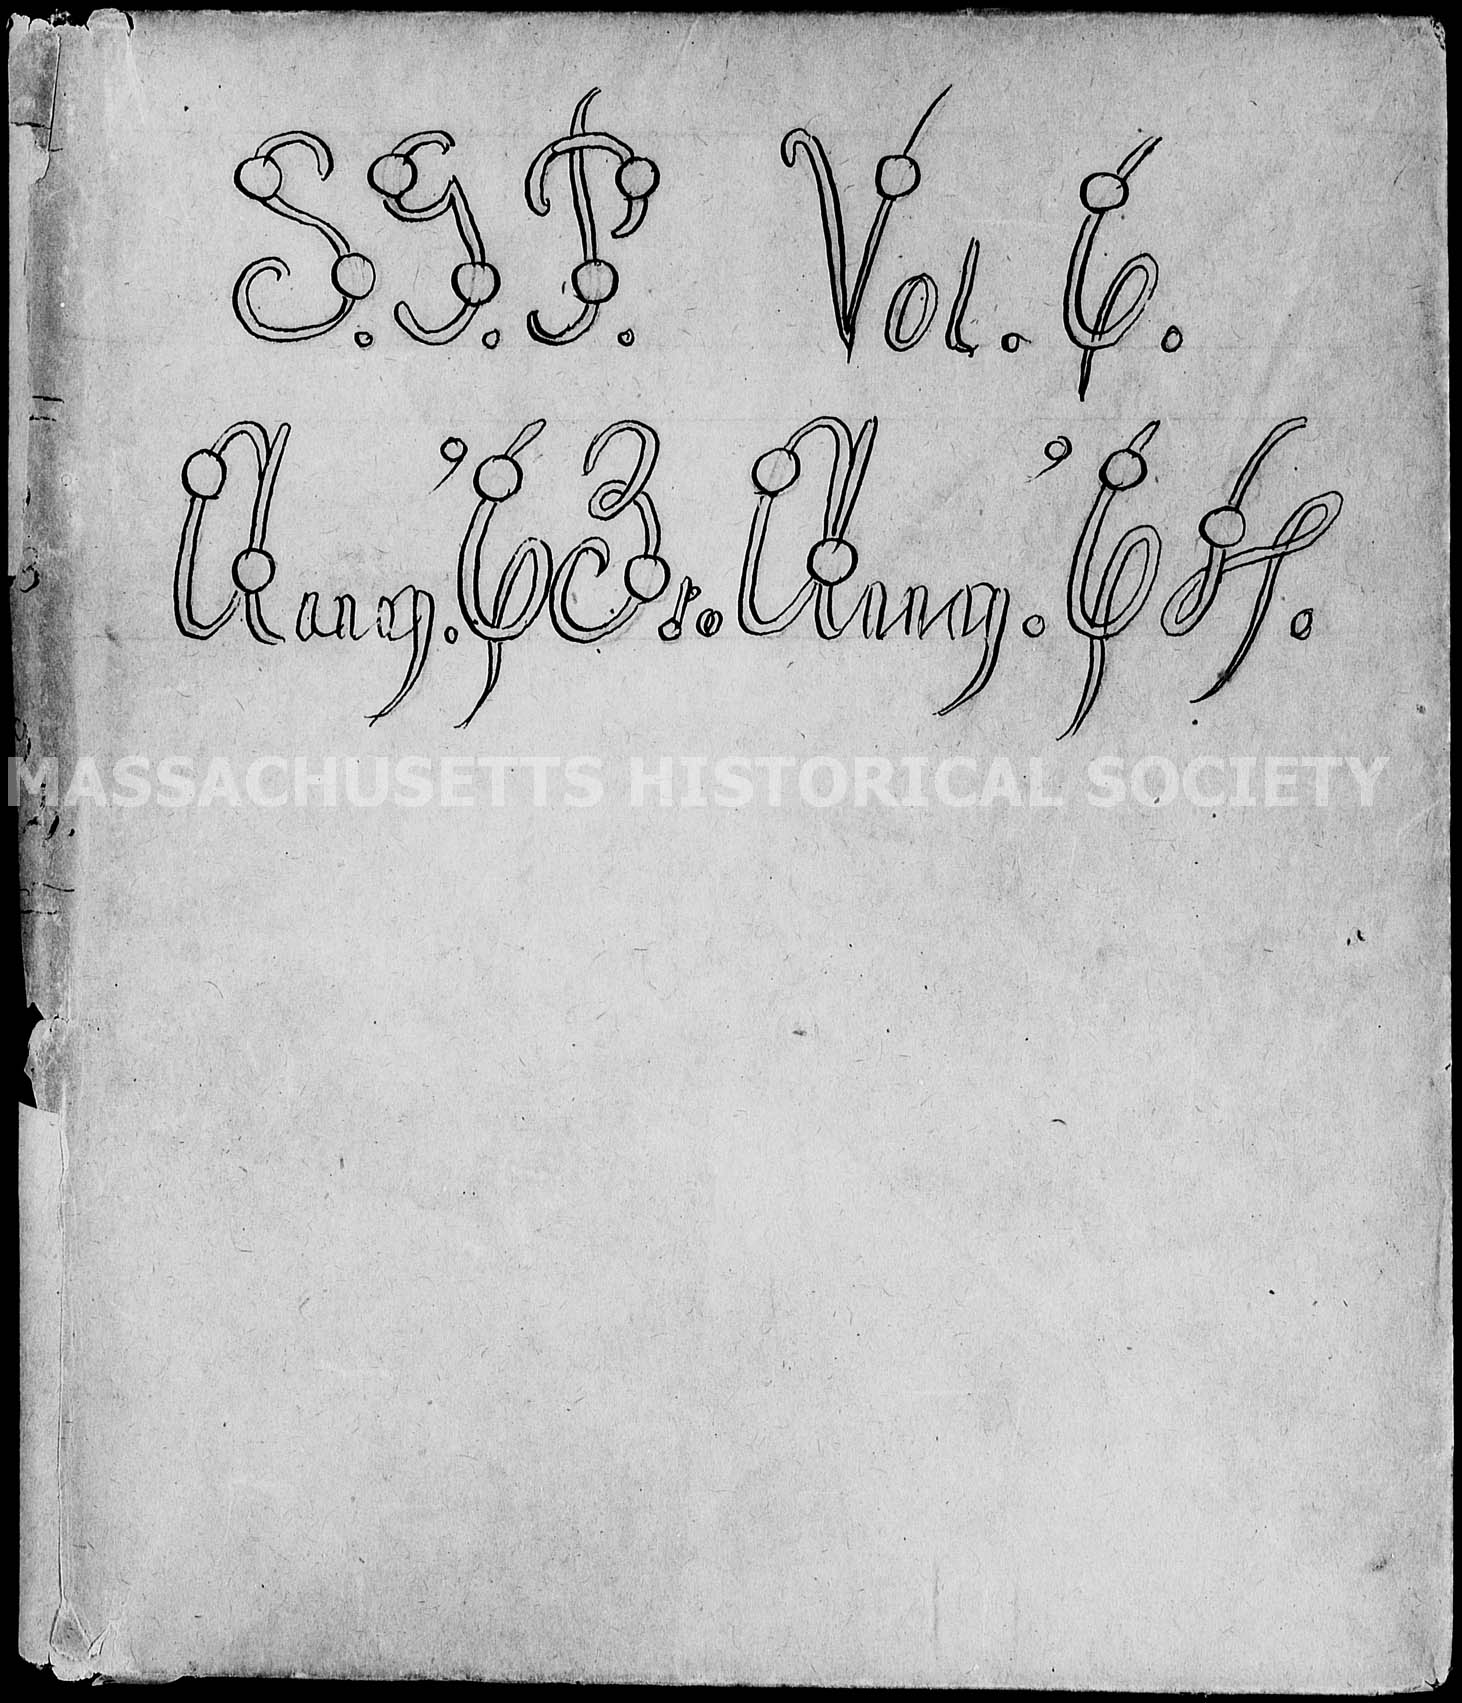 S.G.P. Vol. 6.
Aug. '63 to Aug. '64.
MASSACHUSETTS HISTORICAL SOCIETY